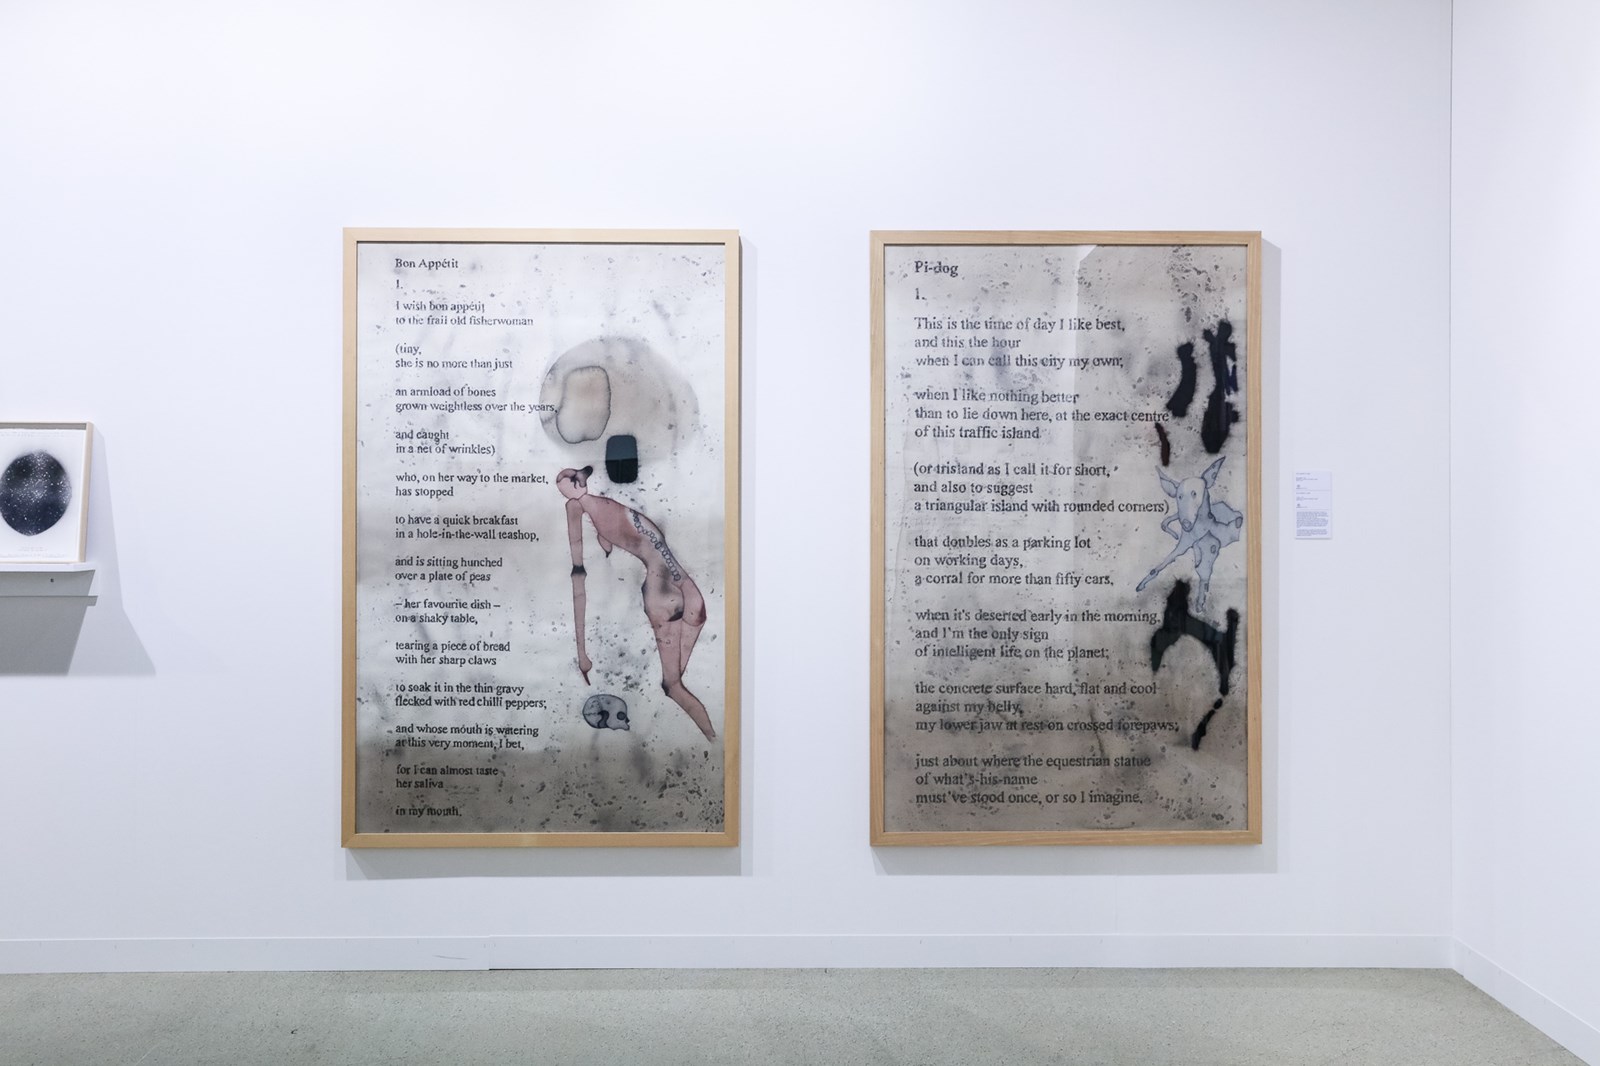 Bon Appétit
1.
I wish bon appétit
to the frail old fisherwoman
(tiny,
she is no more than just
an armload of bones
grown weightless over the years,
and caught
in a net of wrinkles)
who, on her way to the market,
has stopped
to have a quick breakfast
in a hole-in-the-wall teashop,
and is sitting hunched
over a plate of peas
– her favourite dish –
on a shaky table,
tearing a piece of bread
with her sharp claws
to soak it in the thin gravy
flecked with red chilli peppers;
and whose mouth is watering
at this very moment, I bet,
for I can almost taste
her saliva
in my mouth.
Pi-dog
1.
This is the time of day I like best,
and this the hour
when I can call this city my own;
when I like nothing better
than to lie down here, at the exact centre
of this traffic island
(or trisland as I call it for short,
and also to suggest
a triangular island with rounded corners)
that doubles as a parking lot
on working days,
a corral for more than fifty cars,
when it's deserted early in the morning,
and I'm the only sign
of intelligent life on the planet;
the concrete surface hard, flat and cool
against my belly,
my lower jaw at rest on crossed forepaws;
just about where the equestrian statue
of what's-his-name
must've stood once, or so I imagine.